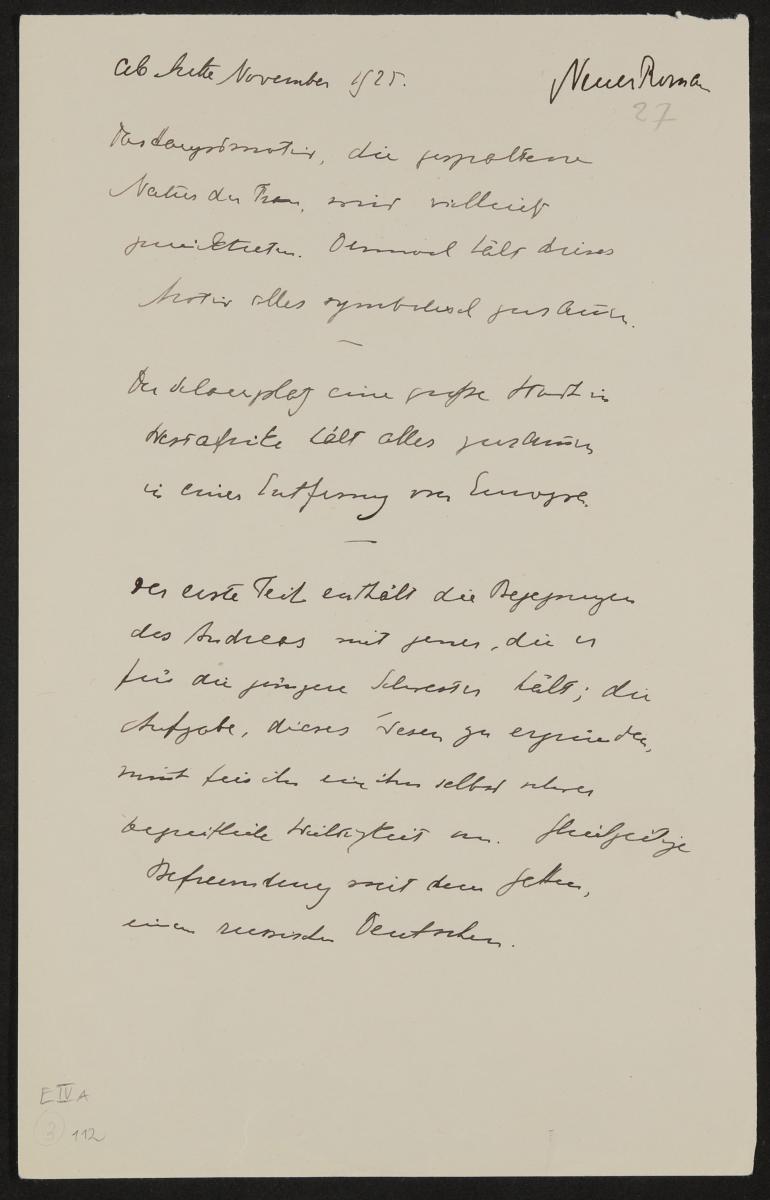 ab Mitte November 1925.
Neuer Roman
27
Das Hauptmotiv, die gespaltene
Natur der Frau, wird vielleicht
zurücktreten. Dennoch hält dieses
Motiv alles symbolisch zusammen.
Der Schauplatz eine große Stadt in
Westafrika hält alles zusammen
in einer Entfernung von Europa.
Der erste Teil enthält die Begegnungen
des Andreas mit jener, die er
für die jüngere Schwester hält; die
Aufgabe, dieses Wesen zu ergründen,
nimt für ihn eine ihm selbst schwer
begreifliche Wichtigkeit an. Gleichzeitige
Befreundung mit dem Gatten,
einem russischen Deutschen.
E IV A
3 112